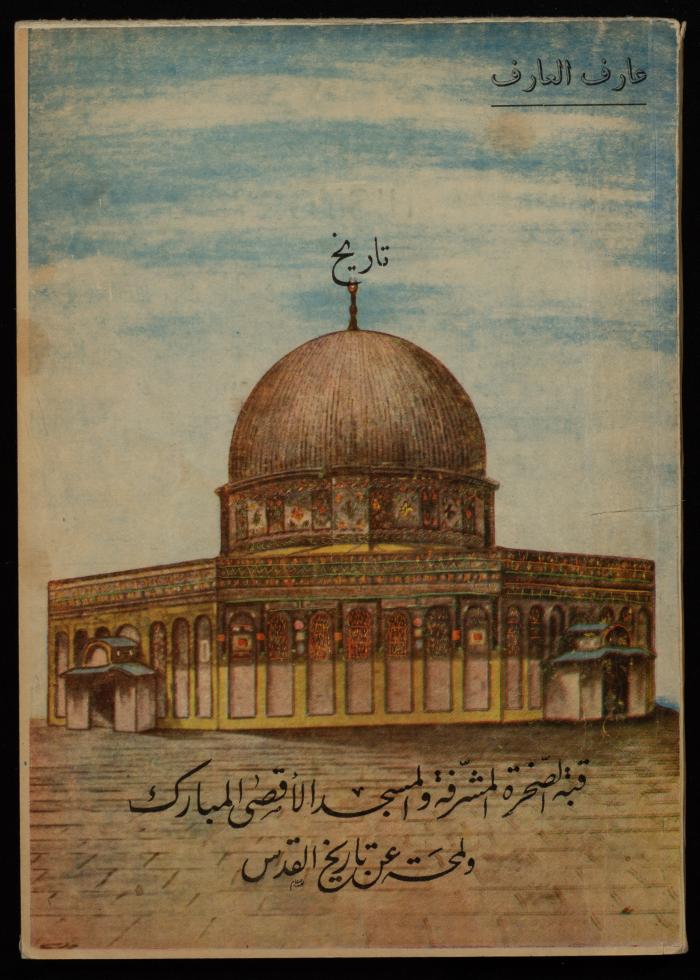 عارف العارف
تاريخ
قبة الصّخرة المشرّفة والمسجد الأقصى المبارك
ولمحة عن تاريخ القدس